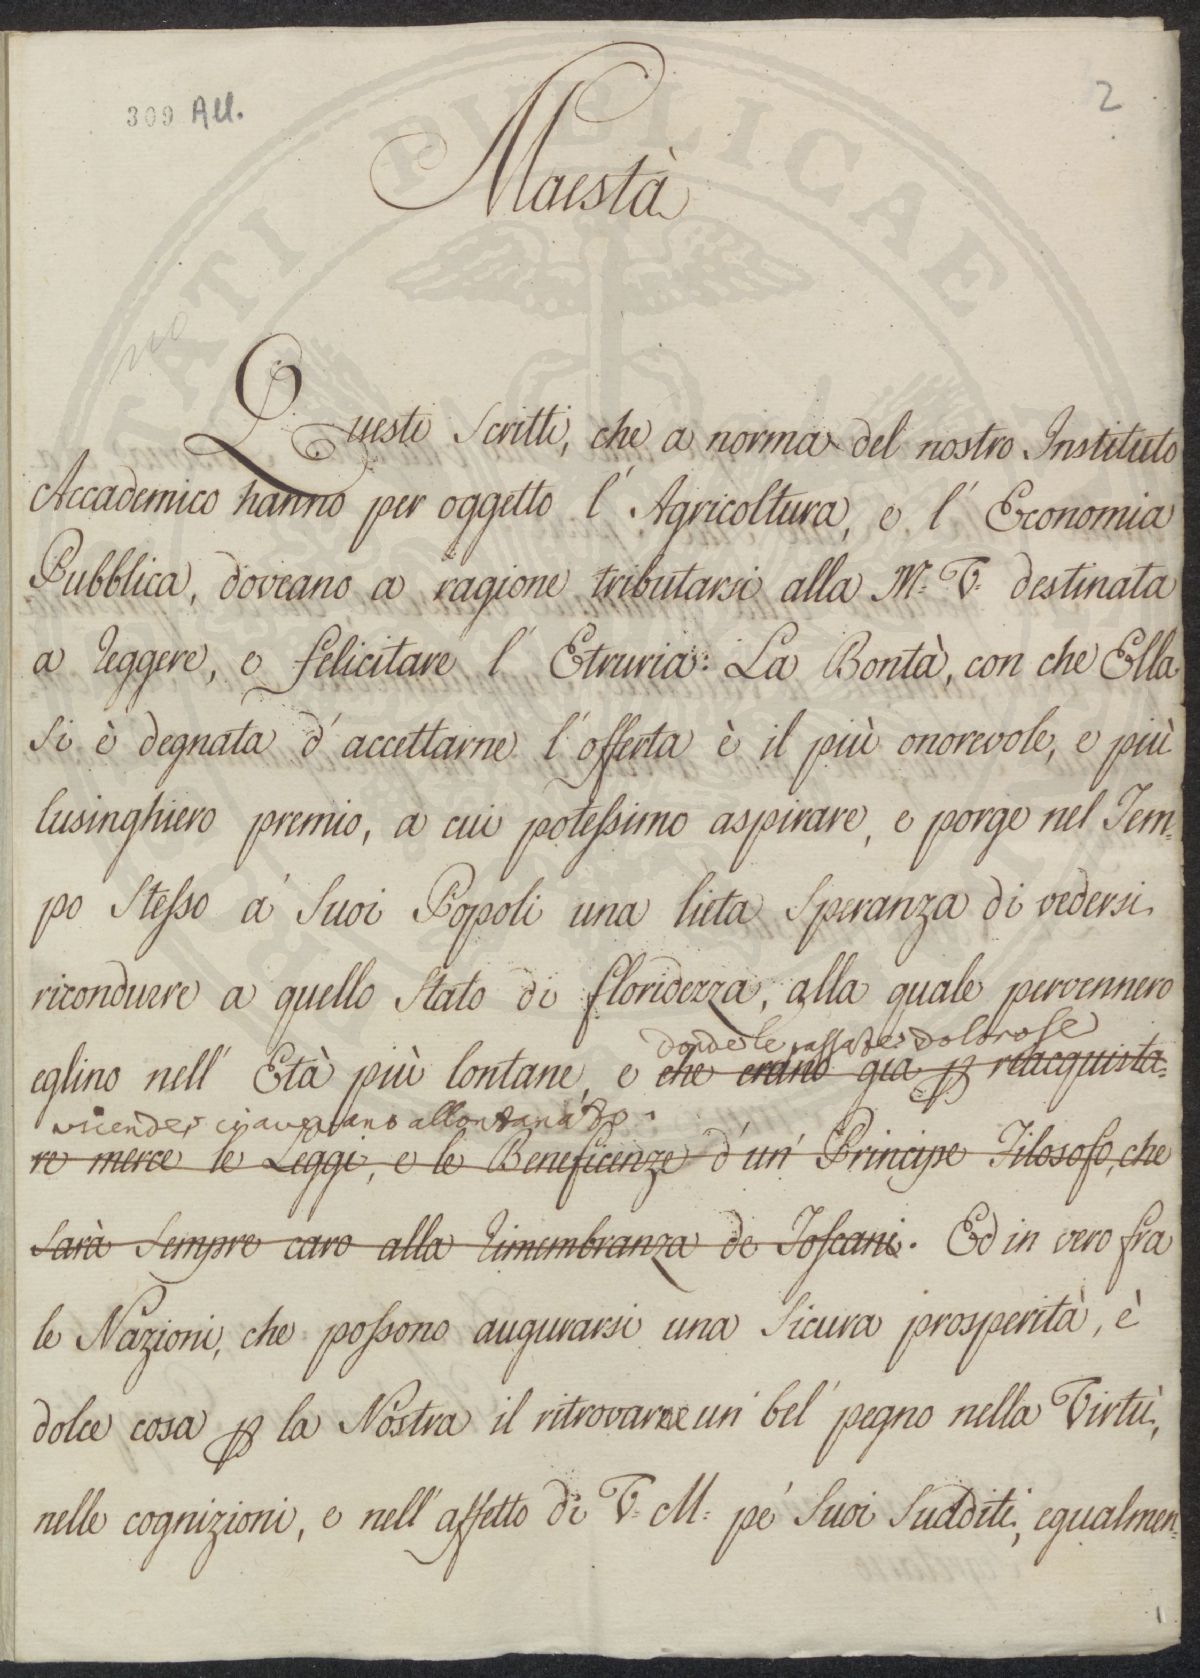 309 All.
2
Maestà
Questi Scritti, che a norma del nostro Instituto
Accademico hanno per oggetto l'Agricoltura, e l'Economia
Pubblica, doveano a ragione tributarsi alla M. V. destinata
a reggere, e felicitare l'Etruria. La Bontà, con che Ella
si è degnata d'accettarne l'offerta è il più onorevole, e più
lusinghiero premio, a cui potessimo aspirare, e porge nel Tem=
po stesso a' suoi Popoli una lieta Speranza di vedersi
ricondurre a quello Stato di floridezza, alla quale pervennero
donde le passate dolorose
eglino nell'Età più lontane, e che erano già p riacquista=
vicende gli aveano allontanato.
re merce le Leggi, e le Beneficenze d'un Principe Filosofo, che
sarà sempre caro alla rimembranza de Toscani. Ed in vero fra
le Nazioni, che possono augurarsi una sicura prosperità, è
dolce cosa p la Nostra il ritrovarne un bel pegno nella Virtù,
nelle cognizioni, e nell'affetto di V. M. pe' suoi Sudditi, egualmen=
1